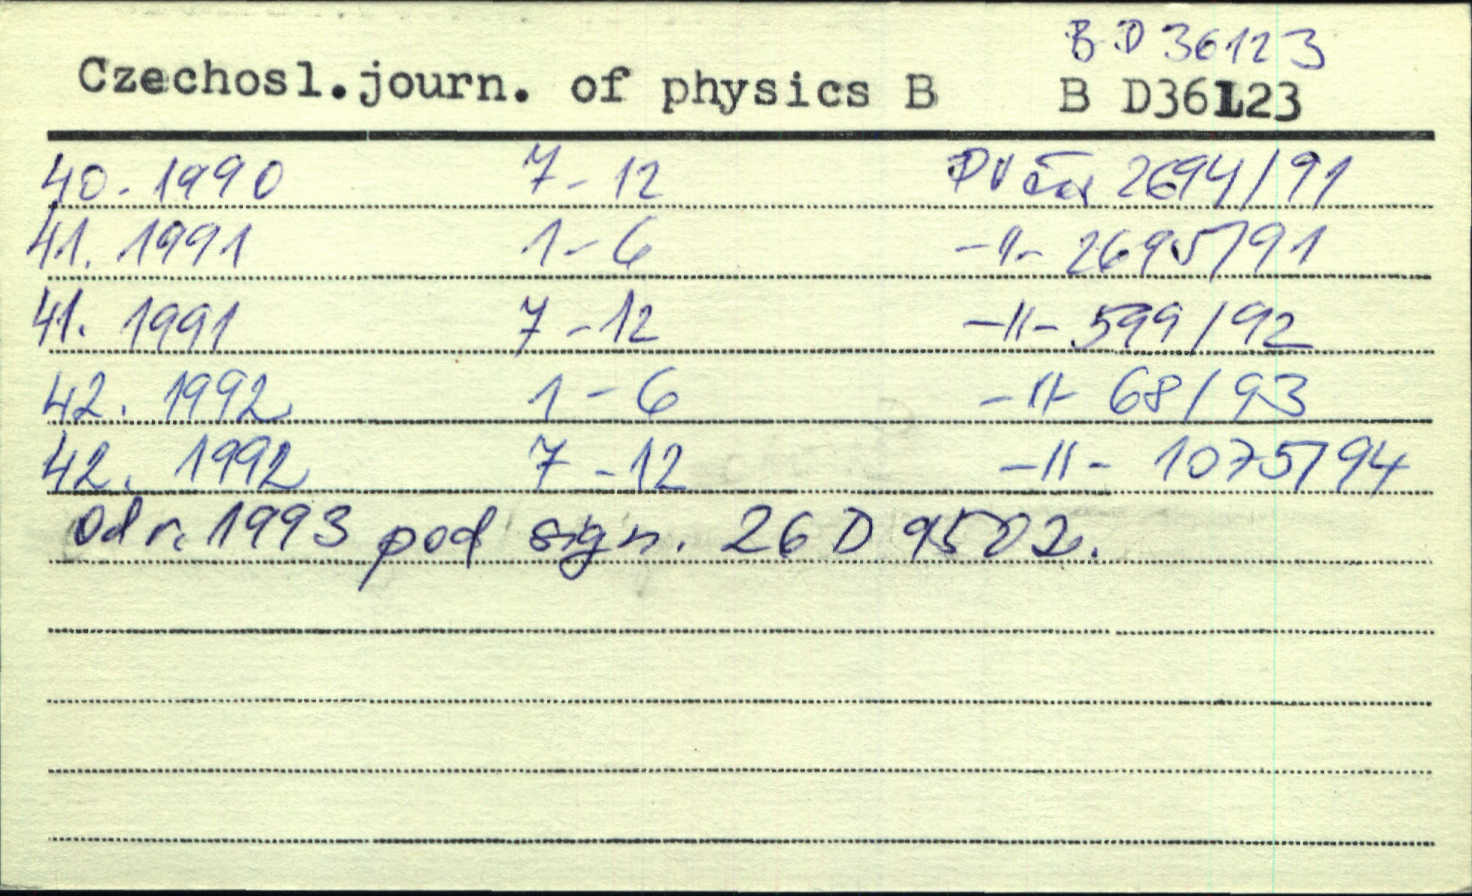 B D 36123
Czechosl.journ. of physics B B D36123
40. 1990 7-12 PV čas 2694/91
41. 1991 1-6 -"- 2695/91
41. 1991 7-12 -"- 599/92
42. 1992 1-6 -"- 68/93
42. 1992 7-12 -"- 1075/94
od r. 1993 pod sign. 26 D 9502.